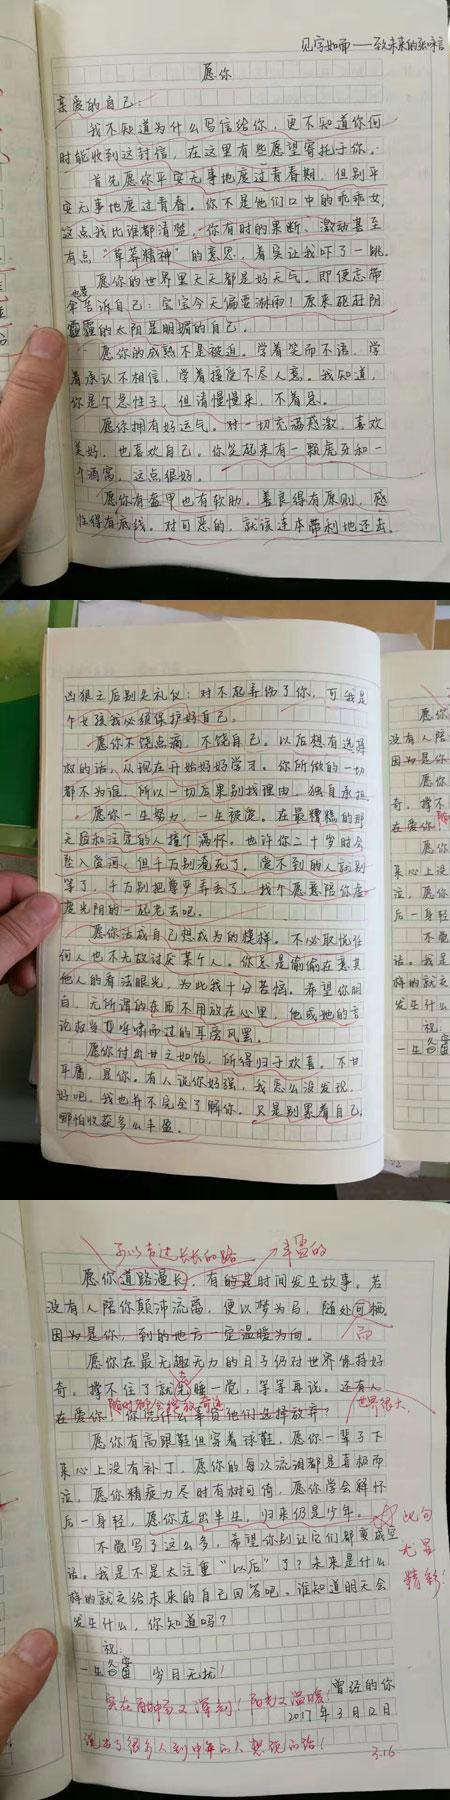 见字如面——致未来的张咪言
愿你
亲爱的自己:
我不知道为什么写信给你,更不知道你何
时能收到这封信,在这里有些愿望寄托于你。
首先愿你平安无事地度过青春期,但别平
安无事地度过青春。你不是他们口中的乖乖女,
这点我比谁都清楚,你有时的果断、激动甚至
有点“草莽精神”的意思,着实让我吓了一跳。
愿你的世界里天天都是好天气。即使忘带
伞也要告诉自己:宝宝今天偏要淋雨!原来砸赶阴
霾霾的太阳是明媚的自己。
愿你的成熟不是被迫。学着笑而不语,学
着承认不相信,学着接受不尽人意。我知道,
你是个急性子,但请慢慢来,不着急。
愿你拥有好运气。对一切充满感激,喜欢
美好,也喜欢自己。你笑起来有一颗虎牙和一
个酒窝,这点很好。
愿你有盔甲也有软肋。善良得有原则,感
性得有底线。对可恶的,就该连本带利地还击。
凶狠之后别失礼仪:对不起弄伤了你,可我是
个女孩我必须保护好自己。
愿你不饶点滴,不饶自己。以后想有选择
权的话,从现在开始好好学习。你所做的一切
都不为谁,所以一切后果别找理由,独自承担。
愿你一生努力,一生被爱。在最糟糕的那
天和注定的人撞个满怀。也许你二十岁时会
坠入爱河,但千万别淹死了,爱不到的人就别
等了,千万别把尊严弄丢了,找个愿意陪你虚
度光阴的一起老去吧。
愿你活成自己想成为的模样。不必取悦任
何人也不无故讨厌某个人。你总是偷偷在意其
他人的看法眼光,为此我十分苦恼。希望你明
白,无所谓的东西不用放在心里,他或她的言
论权当夏呼啸而过的耳旁风罢。
愿你付出甘之如饴,所得归于欢喜。不甘
平庸,是你。有人说你好强,我怎么没发现,
好吧,我也并不完全了解你。只是别累着自己,
哪怕收获多么丰盈。
可以走过长长的路 丰盈的
愿你道路漫长,有的是时间发生故事。若
没有人陪你颠沛流离,便以梦为马,随处可栖
因为是你,到的地方一定温暖为向。
而
愿你在最无趣无力的日子仍对世界保持好
奇。撑不住了就先去睡一觉,等等再说。还有人
随时都会绽放奇迹 世界很大,
在爱你,你凭什么事负他们选择放弃?
愿你有高跟鞋但穿着球鞋,愿你一辈子下
来心上没有补丁,愿你的每次流泪都是喜极而
泣,愿你精疲力尽时有树可倚,愿你学会释怀
后一身轻,愿你走出半生,归来仍是少年。
此句
尤显
精彩!
不觉写了这么多,希望你别让它们都变成空
话。我是不是太注重“以后”了?未来是什么
样的就交给未来的自己回答吧。谁知道明天会
发生什么,你知道吗?
祝:
一生备蜜 岁月无扰!
曾经的你
2017年3月12日
实在酣畅又深刻!阳光又温暖!
说出了很多人到中年的人想说的话!
3.16